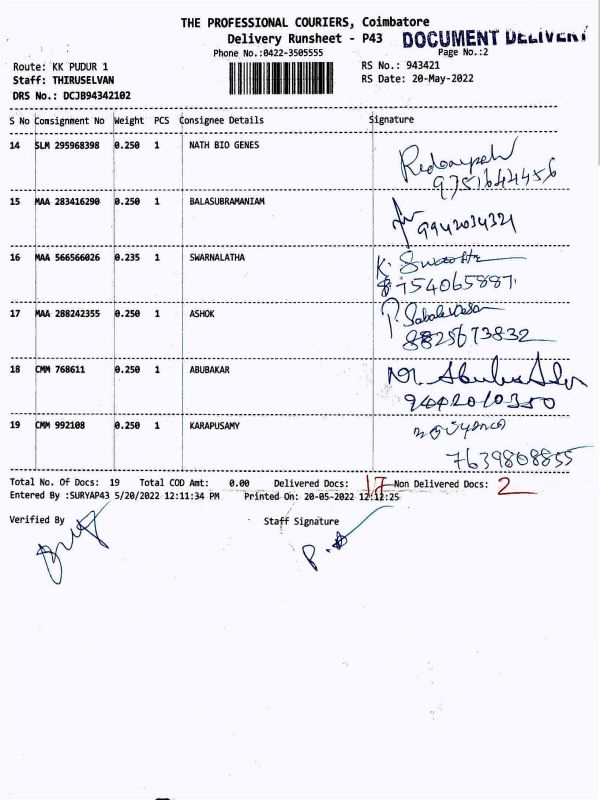 THE PROFESSIONAL COURIERS, Coimbatore
Delivery Runsheet - P43
DOCUMENT DELIVERY
Phone No.:0422-3505555
Page No.:2
Route: KK PUDUR 1
RS No.: 943421
Staff: THIRUSELVAN
RS Date: 20-May-2022
DRS No.: DCJB94342102
S No Consignment No Weight PCS Consignee Details Signature
14 SLM 295968398 0.250 1 NATH BIO GENES
9751644456
15 MAA 283416290 0.250 1 BALASUBRAMANIAM
9942034321
16 MAA 566566026 0.235 1 SWARNALATHA K.
8754065887
17 MAA 288242355 0.250 1 ASHOK P.
8825673832
18 CMM 768611 0.250 1 ABUBAKAR
9442010350
19 CMM 992108 0.250 1 KARAPUSAMY
7639808855
Total No. Of Docs: 19 Total COD Amt: 0.00 Delivered Docs: 17 Non Delivered Docs: 2
Entered By :SURYAP43 5/20/2022 12:11:34 PM Printed On: 20-05-2022 12:12:25
Verified By Staff Signature